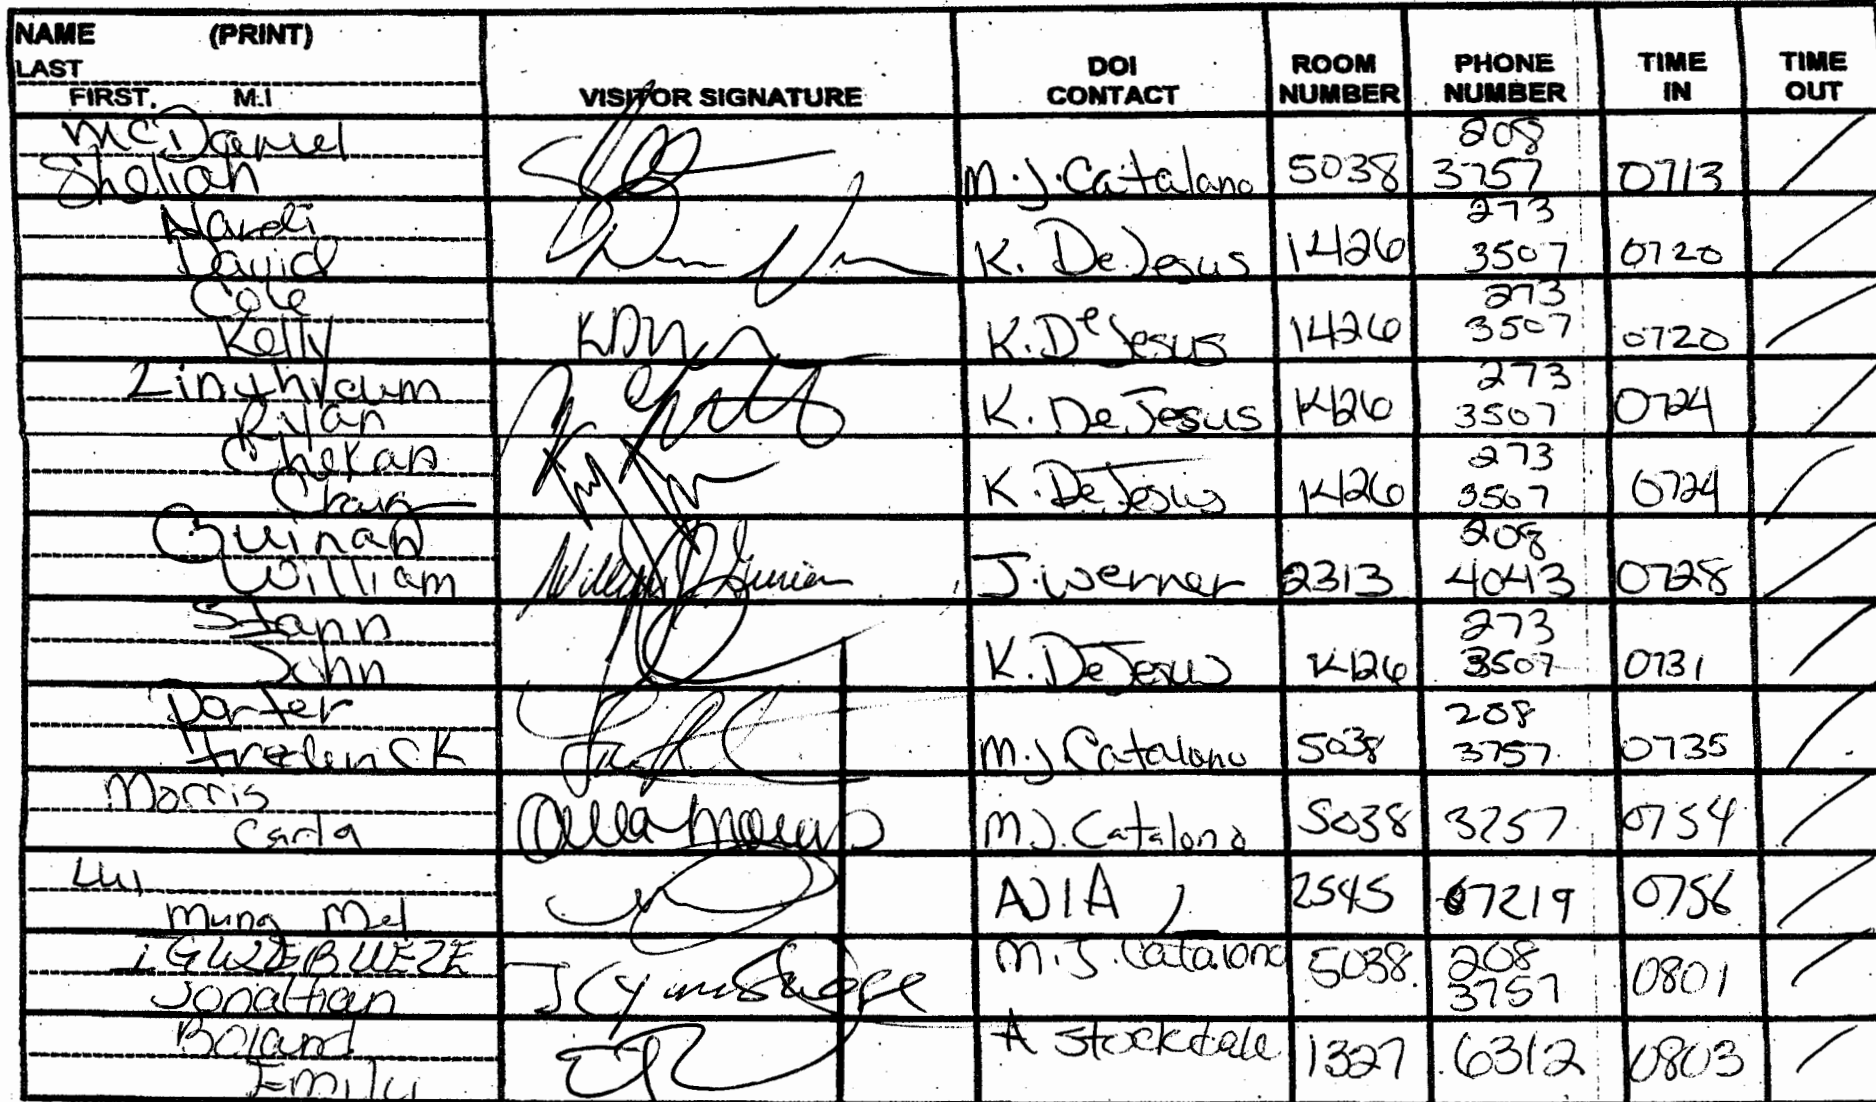 NAME (PRINT)
LAST
FIRST, M.I
VISITOR SIGNATURE
DOI CONTACT
ROOM NUMBER
PHONE NUMBER
TIME IN
TIME OUT
McDaniel
Sheliah
M.J. Catalano 5038 208 3757 0713
Nardi
David
K. DeJesus 1426 273 3507 0720
Cole
Kelly
K. DeJesus 1426 273 3507 0720
Linthicum
Ryan
K. DeJesus 1426 273 3507 0724
Chekan
Craig
K. DeJesus 1426 273 3507 0724
Guinan
William
J. Werner 2313 208 4043 0728
Stann
John
K. DeJesus 1426 273 3507 0731
Porter
Frederick
M.J Catalano 5038 208 3757 0735
Morris
Carla
Carla Morris
M.J. Catalono 5038 3757 0754
Lui
Mung Mel
2545 67219 0756
IGWZEBUEZE
Jonathan
M.J. Catalono 5038 208 3757 0801
Boland
Emily
A Stockdale 1327 6312 0803